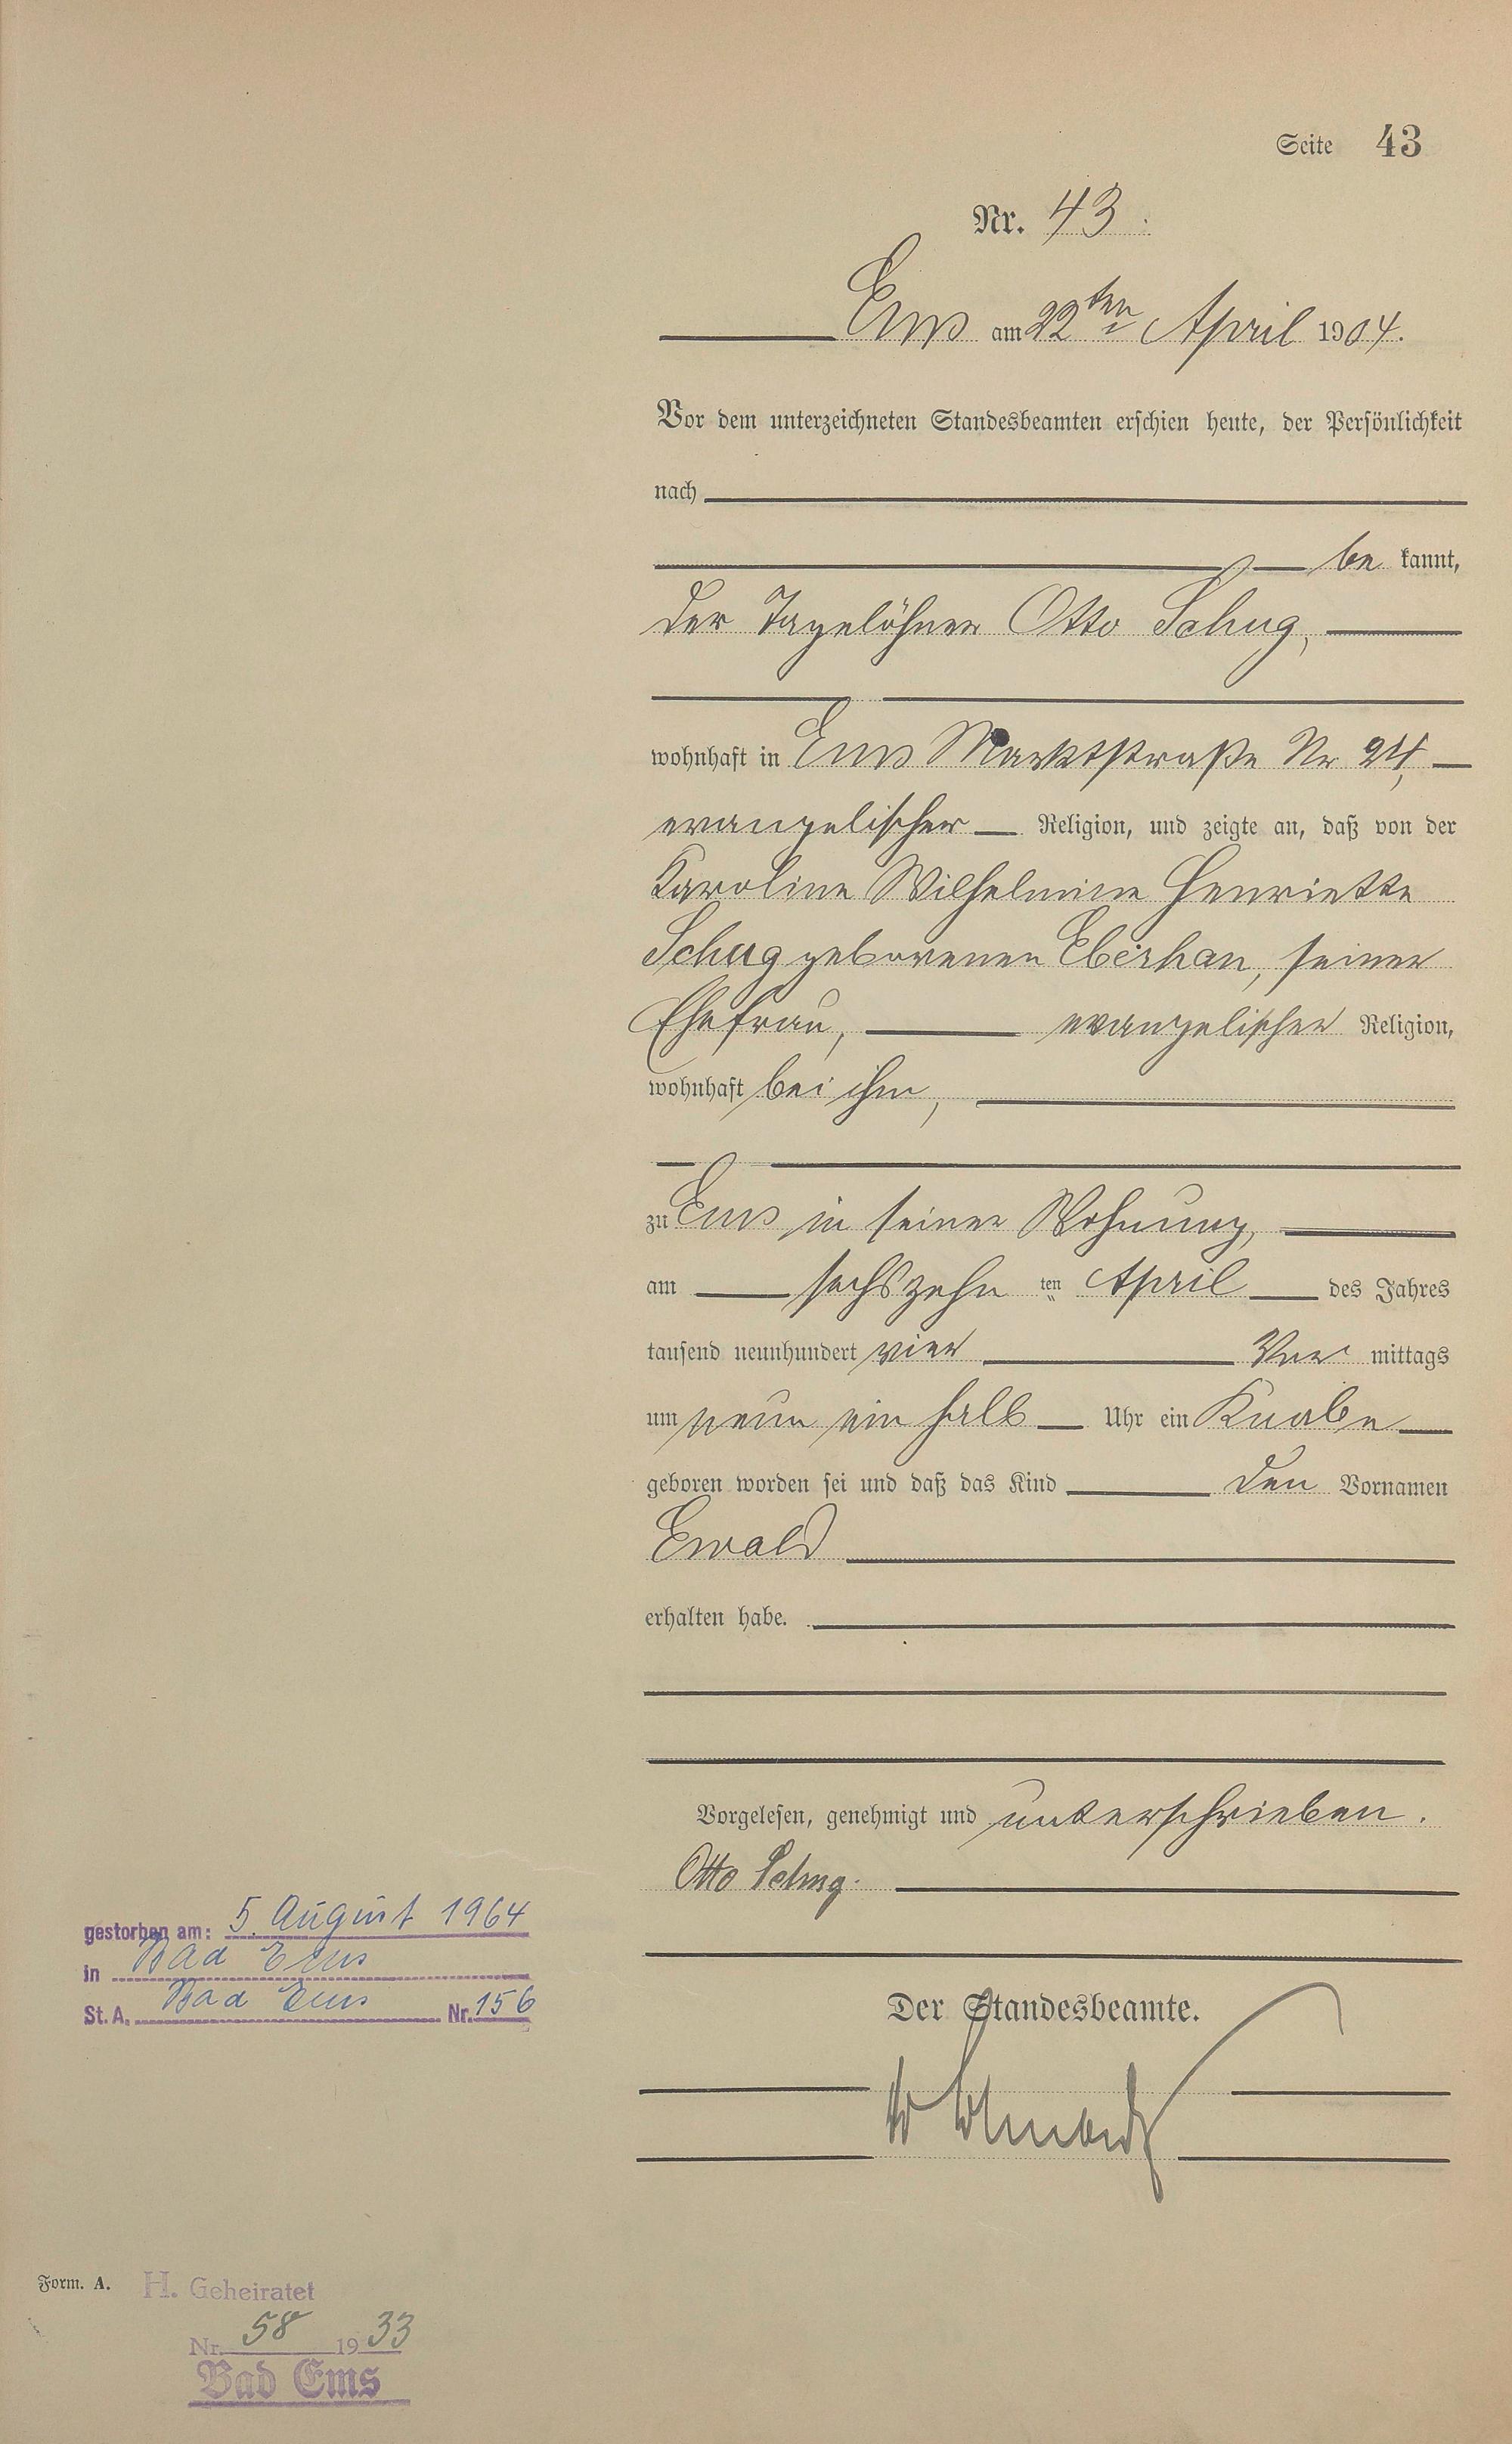 Seite 43
Nr. 43.
Ems am 22ten April 1904.
Vor dem unterzeichneten Standesbeamten erschien heute, der Persönlichkeit
nach
be kannt,
der Tagelöhner Otto Schug,
wohnhaft in Ems Marktstraße Nr 24,
evangelischer Religion, und zeigte an, daß von der
Karoline Wilhelmine Henriette
Schug geborenen Ebishan, seiner
Ehefrau, evangelischer Religion,
wohnhaft bei ihm,
zu Ems in seiner Wohnung,
am sechszehn ten April des Jahres
tausend neunhundert vier Vor mittags
um neun ein halb Uhr ein Knabe
geboren worden sei und daß das Kind den Vornamen
Ewald
erhalten habe.
Vorgelesen, genehmigt und unterschrieben.
Otto Schug.
gestorben am: 5. August 1964
in Bad Ems
St. A. Bad Ems Nr. 156
Der Standesbeamte.
Form. A.
H. Geheiratet
Nr. 58 1933
Bad Ems